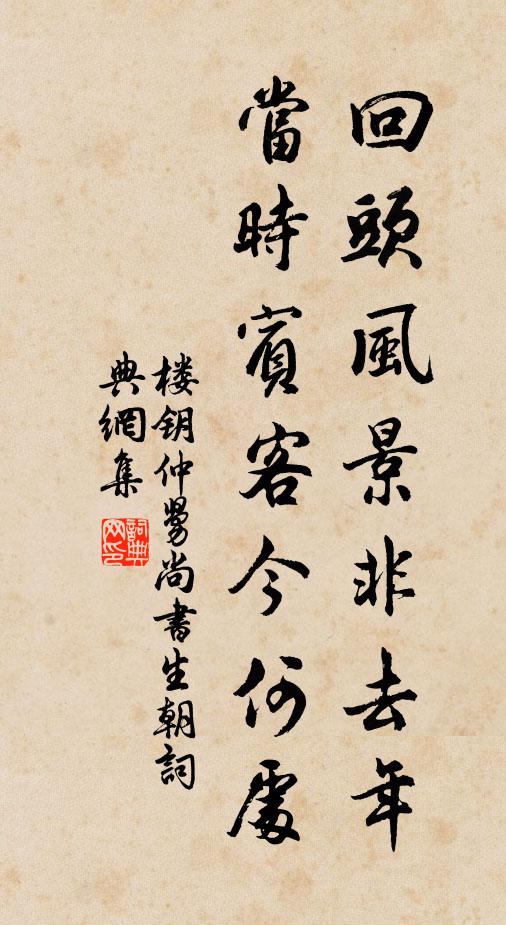 回頭風景非去年
當時賓客今何處
楼钥仲舅尚書生朝詞
典網集
詞典網印